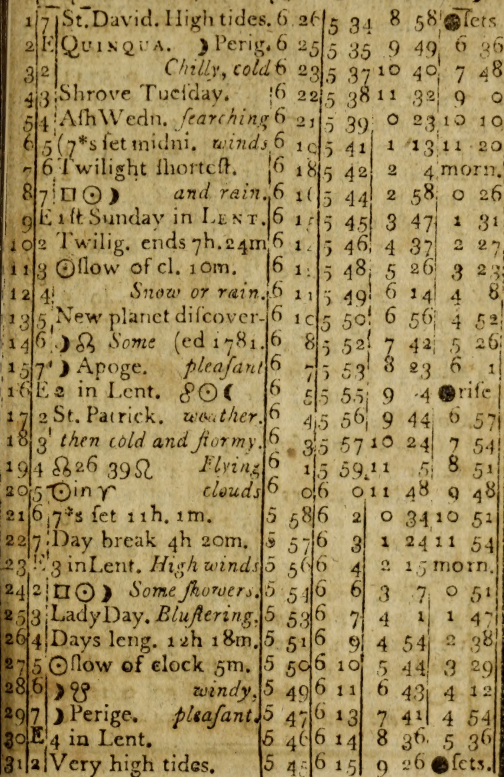 1 7 St. David. High tides. 6 26 5 34 8 58 ●ſets.
2 E QUINQUA. ☽ Perig. 6 25 5 35 9 49 6 36
3 2 Chilly, cold 6 23 5 37 10 40 7 48
4 3 Shrove Tueſday. 6 22 5 38 11 32 9 0
5 4 Aſh Wedn. ſearching 6 21 5 39 0 23 10 10
6 5 (7*s ſet midni. winds 6 19 5 41 1 13 11 20
7 6 Twilight ſhorteſt. 6 18 5 42 2 4 morn.
8 7 □ ☉ ☽ and rain. 6 5 44 2 58 0 26
9 E 1ſt Sunday in LENT. 6 5 45 3 47 1 31
10 2 Twilig. ends 7h. 24m 6 5 46 4 37 2 27
11 3 ☉ſlow of cl. 10m. 6 5 48 5 26 3 23
12 4 Snow or rain. 6 11 5 49 6 14 4 8
13 5 New planet diſcover- 6 10 5 50 6 56 4 52
14 6 ☽ ☊ Some (ed 1781. 6 8 5 52 7 42 5 26
15 7 ☽ Apoge. pleaſant 6 7 5 53 8 23 6 1
16 E 2 in Lent. ☍ ☉ ☾ 6 5 5 55 9 4 ●riſe
17 2 St. Patrick. weather. 6 4 5 56 9 44 6 57
18 3 then cold and ſtormy. 6 3 5 57 10 24 7 54
19 4 ☊ 26 39 ♌ Flying 6 1 5 59 11 5 8 51
20 5 ☉ in ♈ clouds 6 0 6 0 11 48 9 48
21 6 7*s ſet 11h. 1m. 5 58 6 2 0 34 10 51
22 7 Day break 4h 20m. 5 57 6 3 1 24 11 54
23 E 3 in Lent. High winds 5 56 6 4 2 15 morn.
24 2 □ ☉ ☽ Some ſhowers. 5 54 6 6 3 7 0 51
25 3 Lady Day. Bluſtering, 5 53 6 7 4 1 1 47
26 4 Days leng. 12h 18m. 5 51 6 9 4 54 2 38
27 5 ☉ſlow of clock 5m. 5 50 6 10 5 44 3 29
28 6 ☽ ☋ windy, 5 49 6 11 6 43 4 12
29 7 ☽ Perige. pleaſant. 5 47 6 13 7 41 4 54
30 E 4 in Lent. 5 46 6 14 8 36 5 36
31 2 Very high tides. 5 45 6 15 9 26 ●ſets.